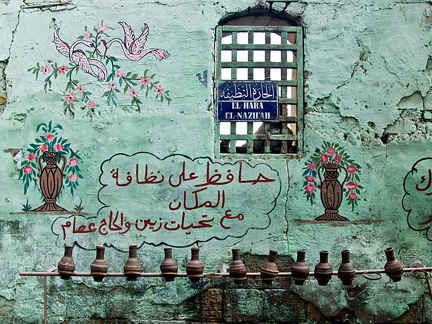 الحارة النظيفة
EL HARA
EL-NAZIFAH
حافظ على نظافة
المكان
مع تحيات زين والحاج عصام